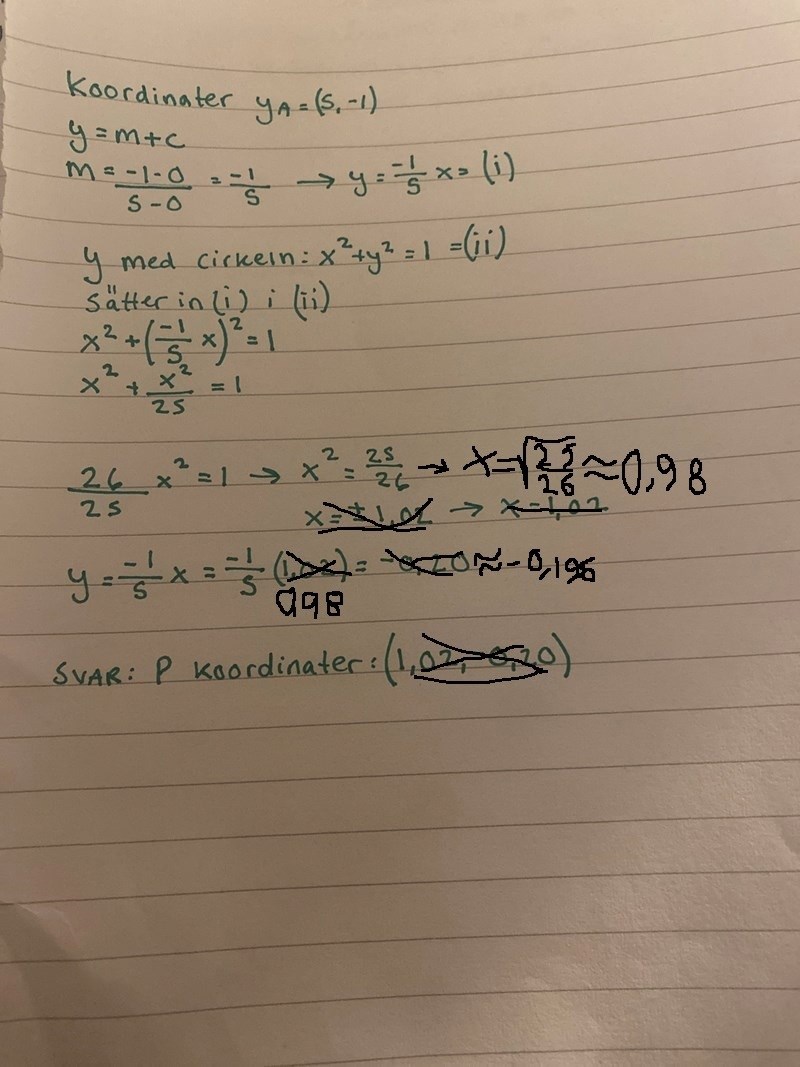 Koordinater y_A = (5, -1)
y = m + c
m = \frac{-1-0}{5-0} = \frac{-1}{5} → y = \frac{-1}{5} x = (i)
y med cirkeln: x² + y² = 1 = (ii)
Sätter in (i) i (ii)
x² + (\frac{-1}{5} x)² = 1
x² + \frac{x²}{25} = 1
\frac{26}{25} x² = 1 → x² = \frac{25}{26} → x = \sqrt{\frac{25}{26}} ≈ 0,98
x = ± 1,02 → x = 1,02
y = \frac{-1}{5} x = \frac{-1}{5} (1,02) = -0,20 ≈ -0,196
0,98
SVAR: P koordinater: (1,02, -0,20)